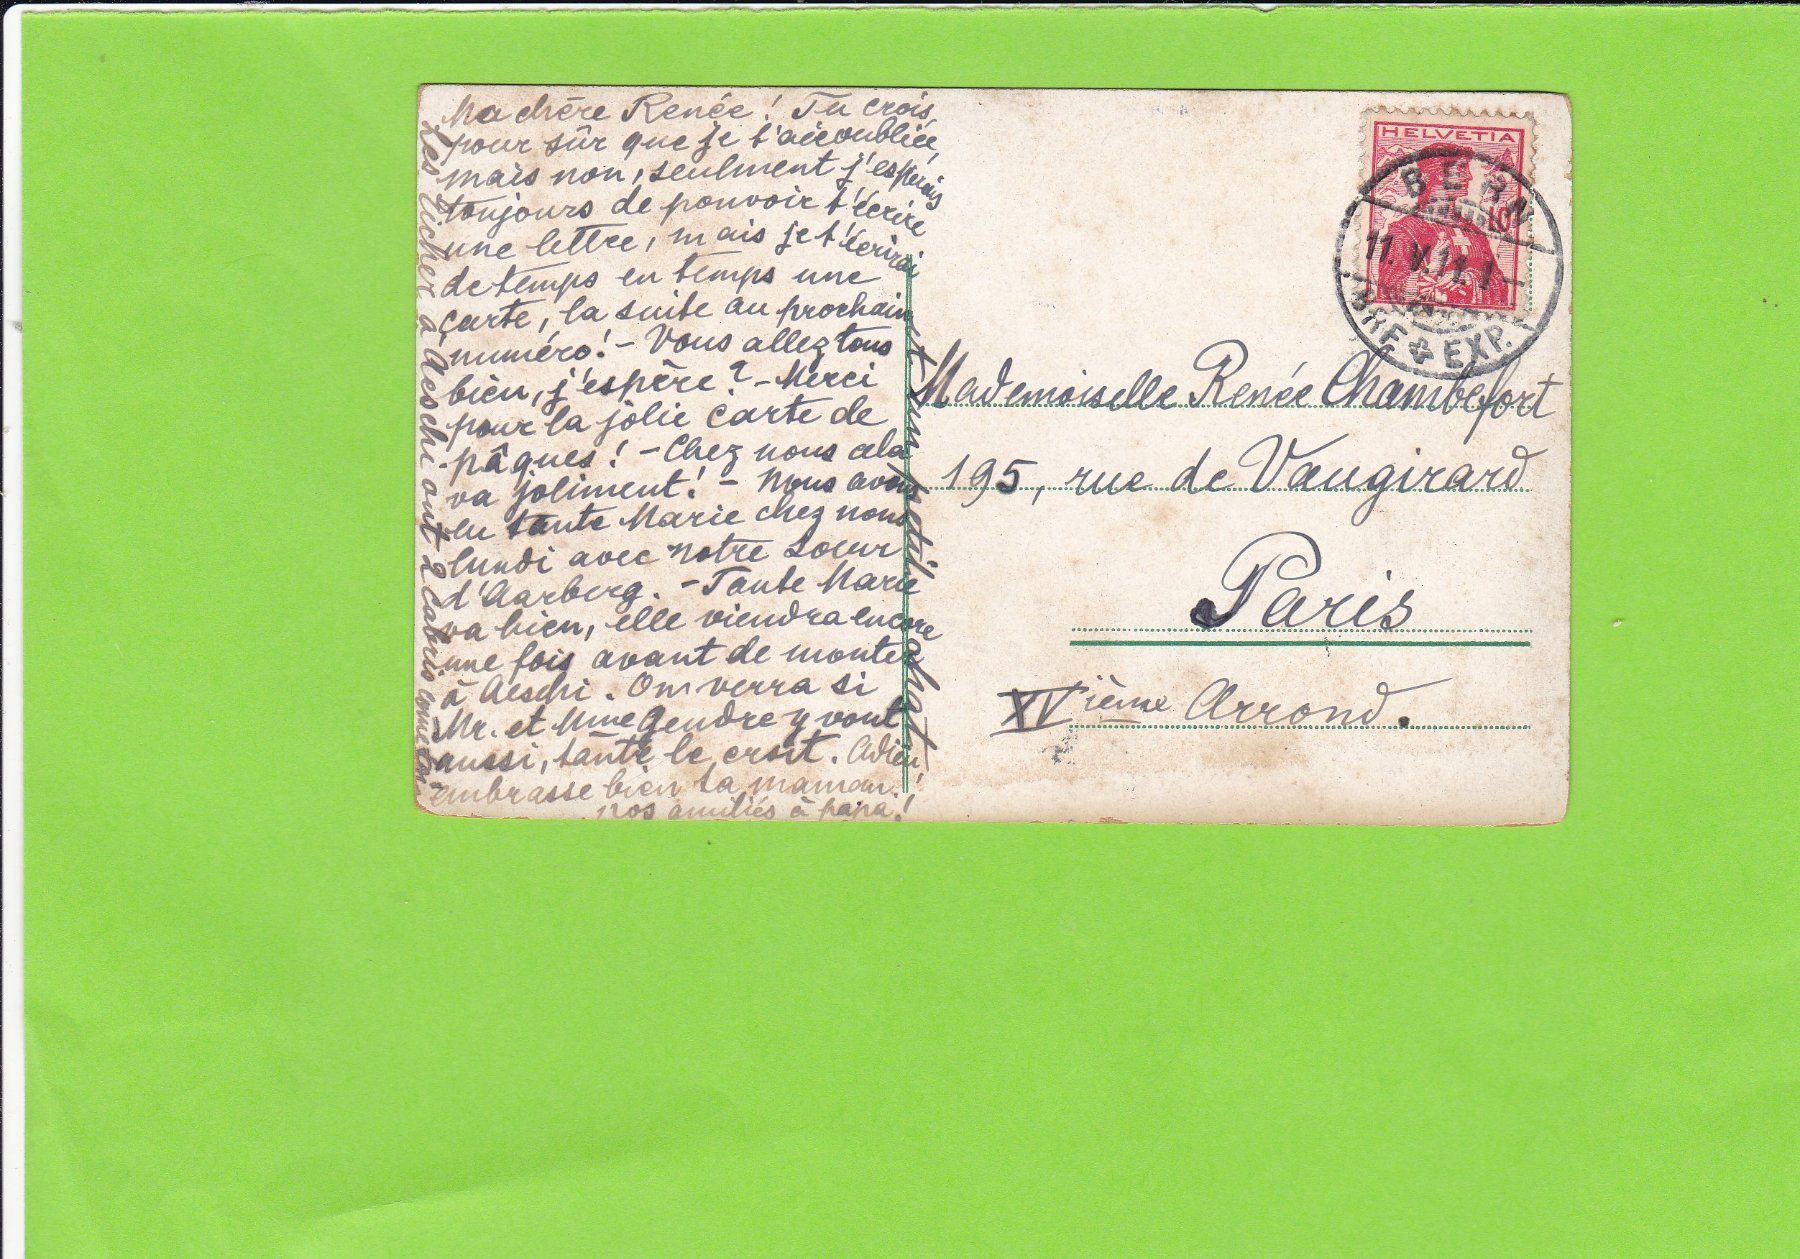 Ma chère Renée! Tu crois
pour sûr que je t'aie oubliée,
mais non, seulment j'espérais
toujours de pouvoir t'écrire
une lettre, mais je t'écrirai
de temps en temps une
carte, la suite au prochain
numéro! - Vous allez tous
bien, j'espère? - Merci
pour la jolie carte de
pâques! - Chez nous cela
va joliment! - Nous avons
eu tante Marie chez nous
lundi avec notre soeur
d'Aarberg. - Tante Marie
va bien, elle viendra encore
une fois avant de monter
à Aeschi. On verra si
Mr. et Mme Gendre y vont
aussi, tante le croit. Adieu!
embrasse bien ta maman.
nos amitiés à papa!
à Aeschi ont 2 cabris
et un petit chat
HELVETIA
10
BERN
11. V. 11. 1-
BRF. & EXP.
Mademoiselle Renée Chambefort
195, rue de Vaugirard
Paris
XVième Arrond.